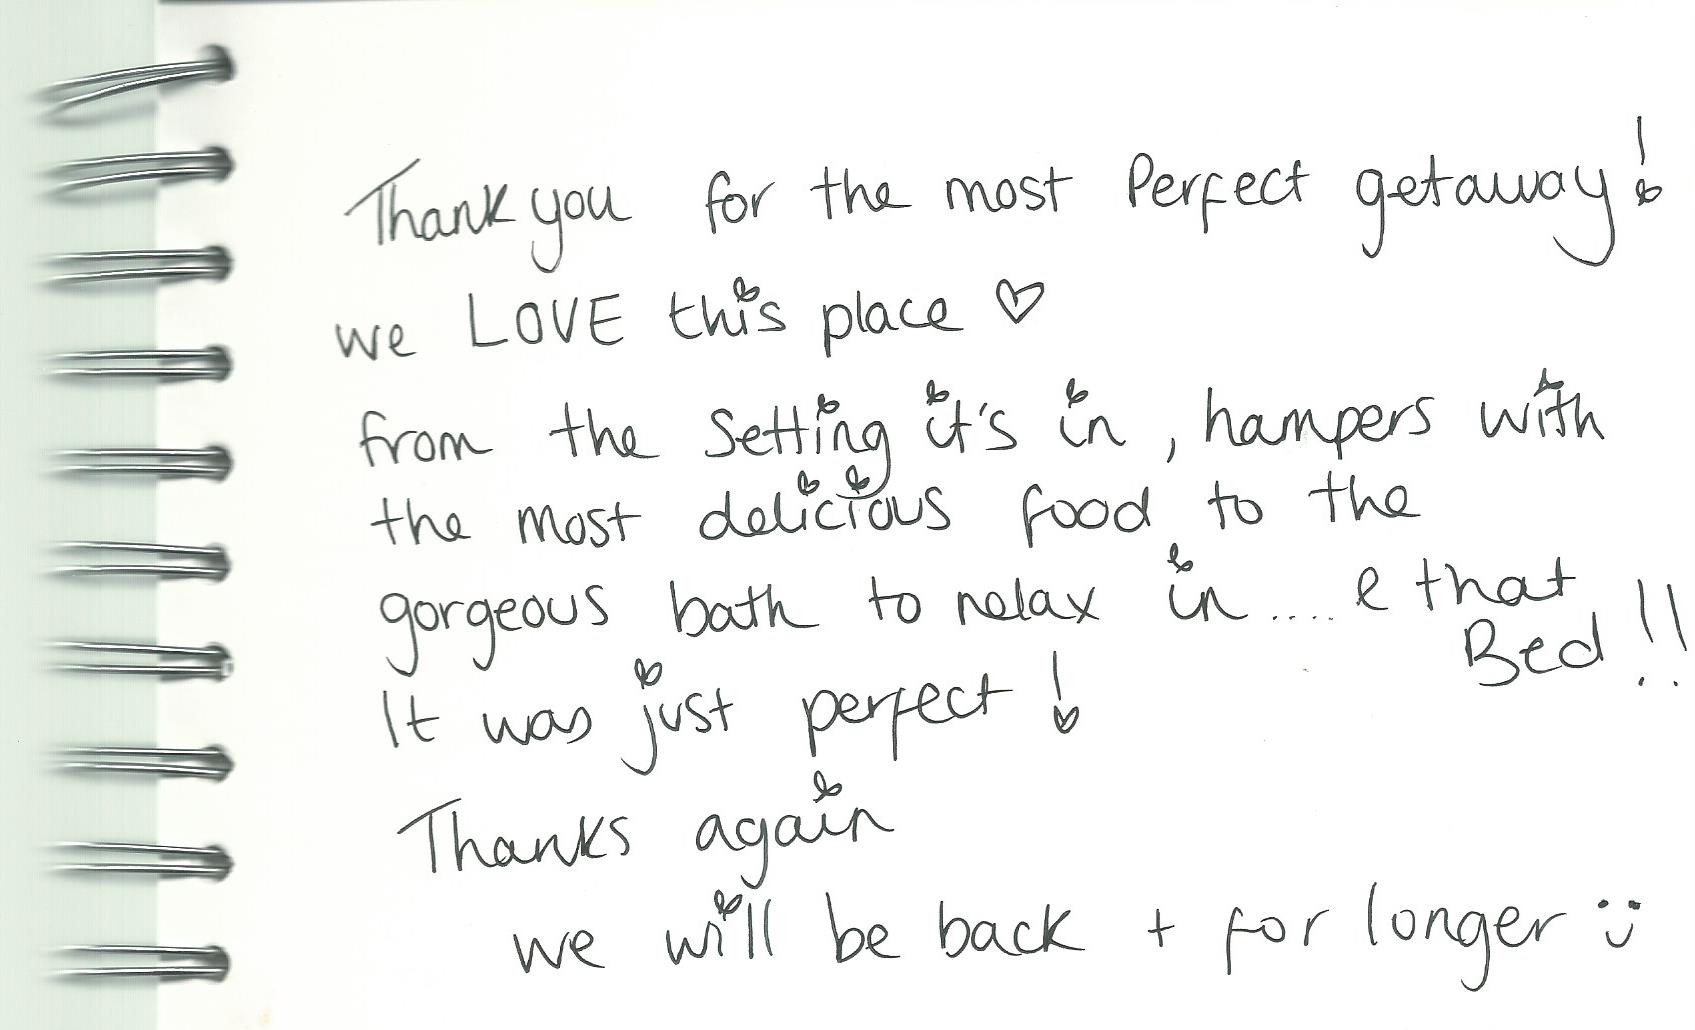 Thank you for the most Perfect getaway!
we LOVE this place ♡
from the Setting it's in, hampers with
the most delicious food to the
gorgeous bath to relax in .... & that
Bed!!
It was just perfect!
Thanks again
we will be back + for longer :)